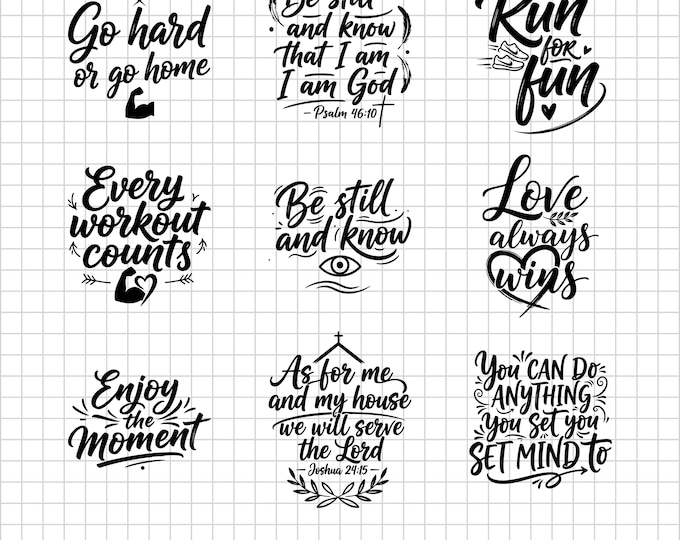 Go hard
or go home
Be still
and know
that I am
I am God
– Psalm 46:10
Run
for
fun
Every
workout
counts
Be still
and know
Love
always
wins
Enjoy
the
Moment
As for me
and my house
we will serve
the Lord
– Joshua 24:15 –
You CAN Do
ANYTHING
You set you
SET MIND to